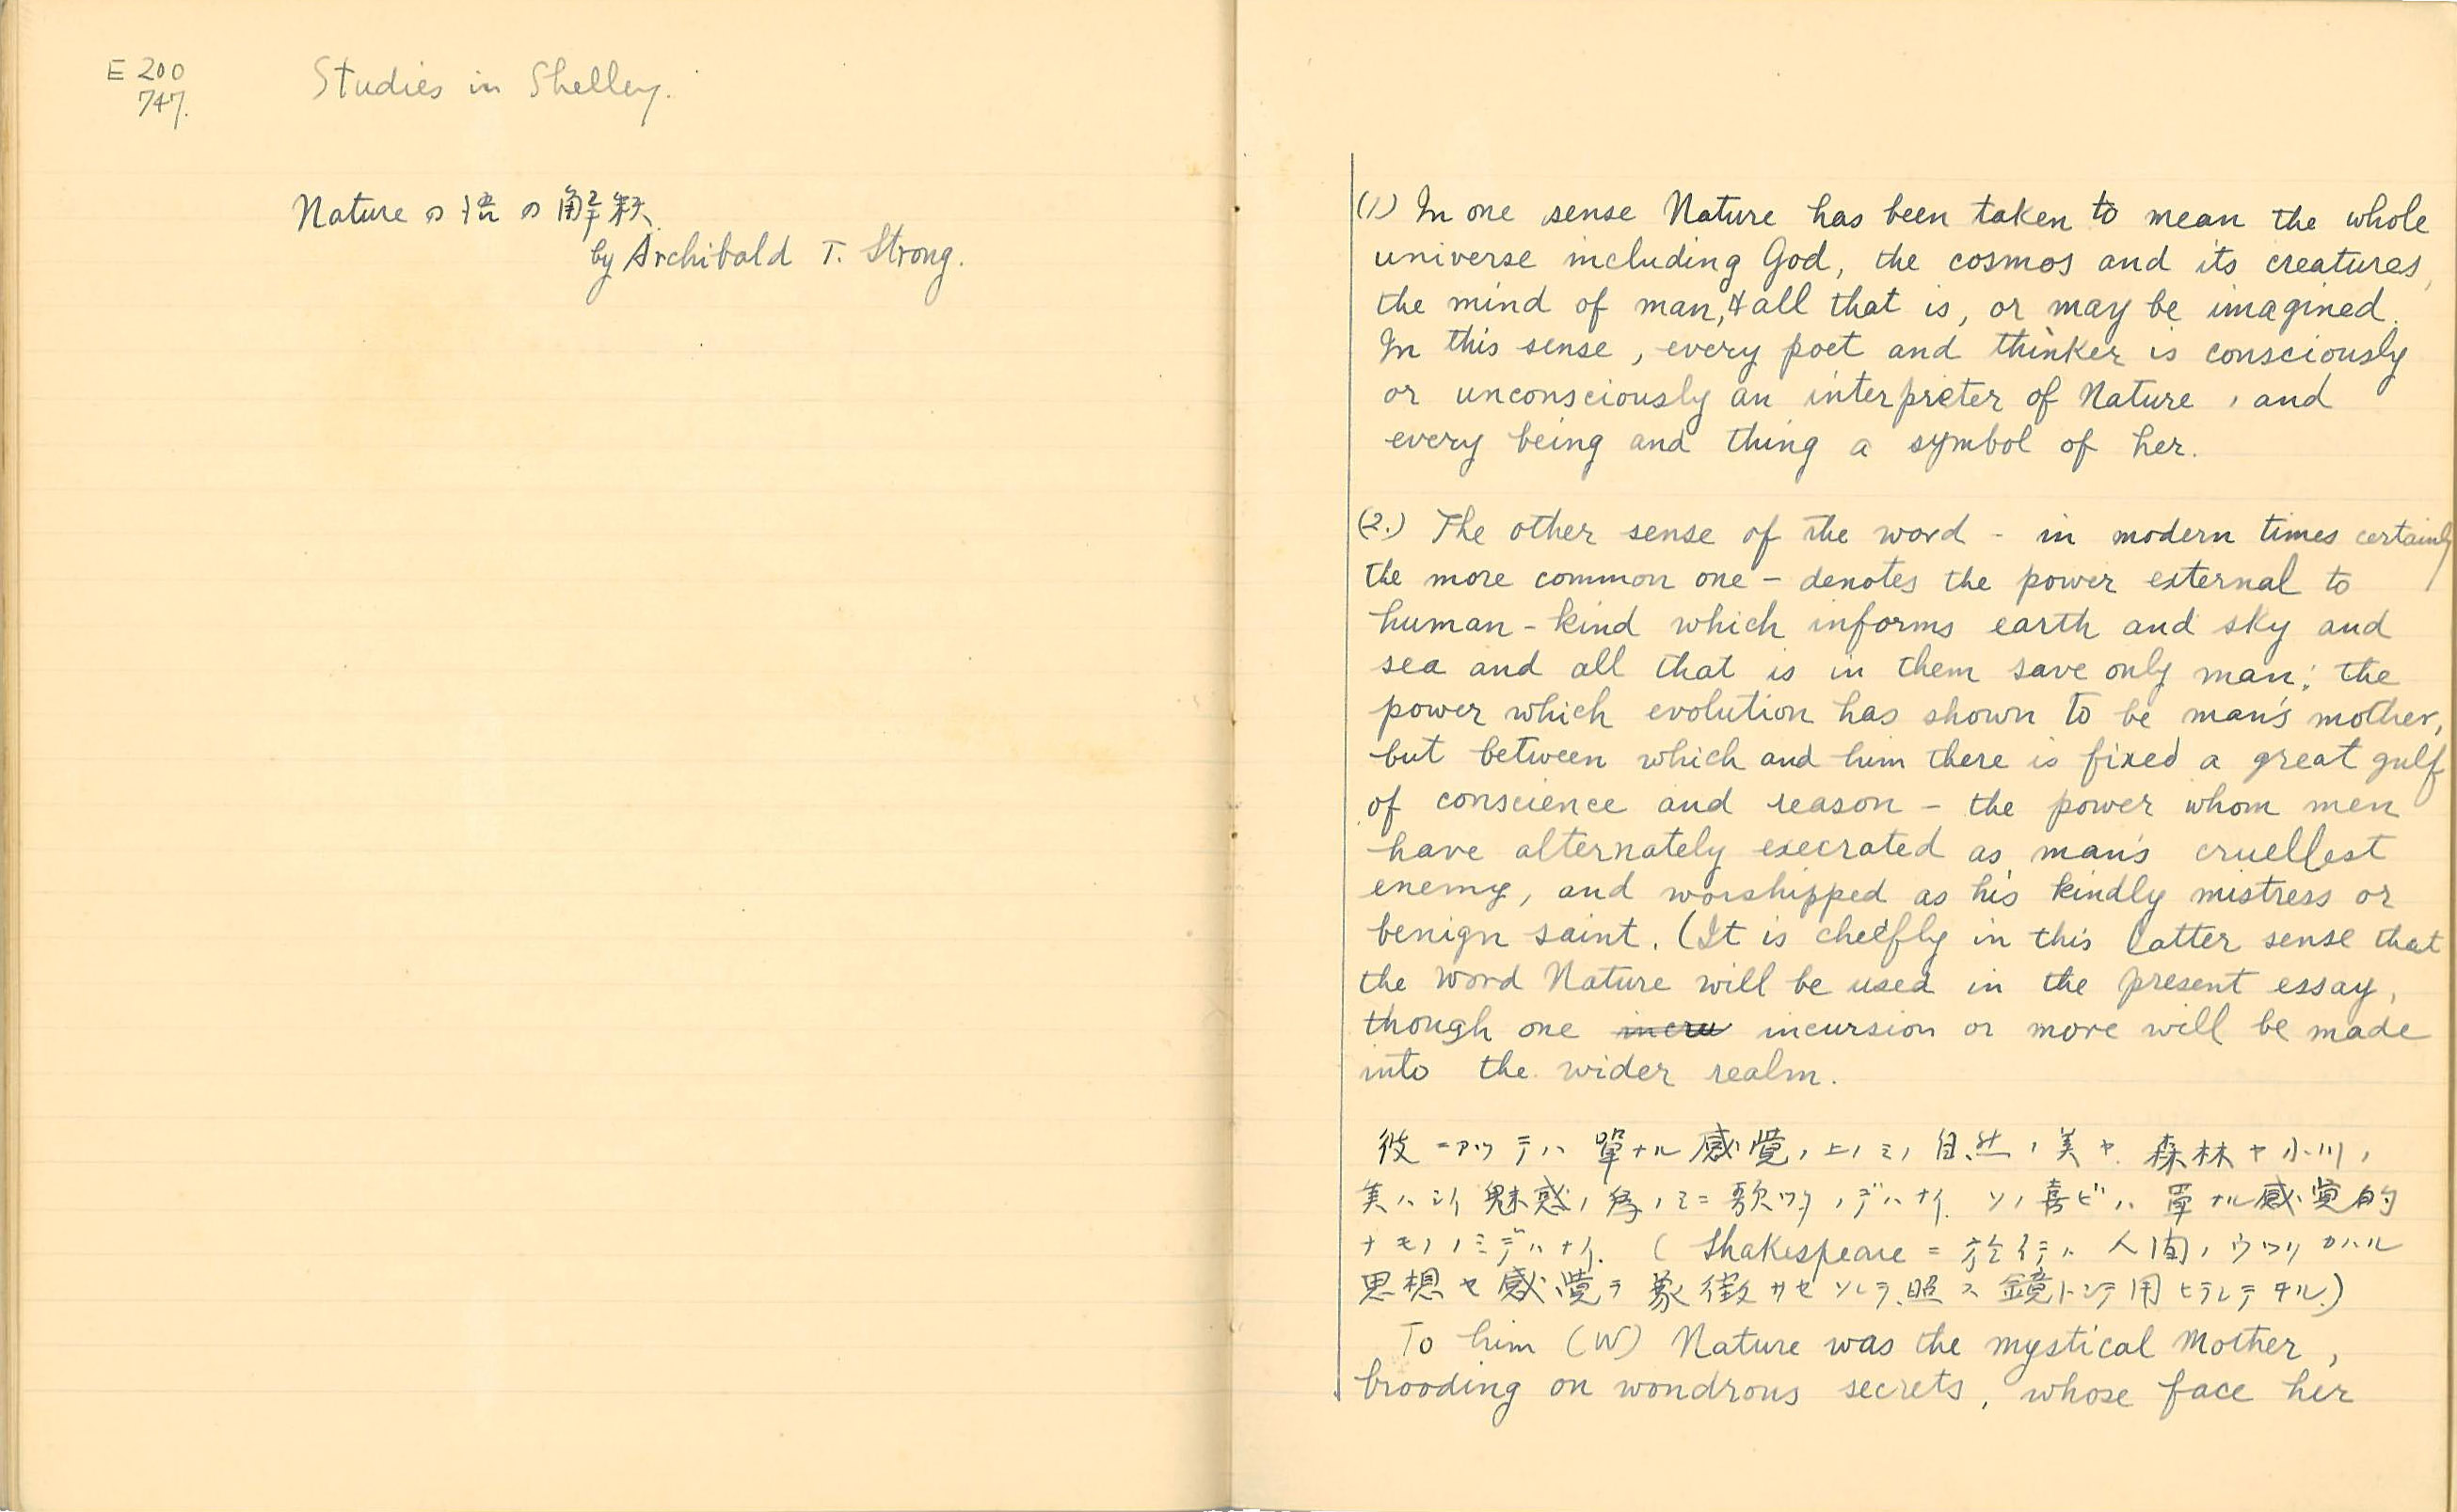 E 200
747.
Studies in Shelley.
Nature の語の解釈.
by Archibald T. Strong.
(1) In one sense Nature has been taken to mean the whole
universe including God, the cosmos and its creatures,
the mind of man, & all that is, or may be imagined.
In this sense, every poet and thinker is consciously
or unconsciously an interpreter of Nature, and
every being and thing a symbol of her.
(2.) The other sense of the word - in modern times certainly
the more common one - denotes the power external to
human-kind which informs earth and sky and
sea and all that is in them save only man; the
power which evolution has shown to be man's mother,
but between which and him there is fixed a great gulf
of conscience and reason - the power whom men
have alternately execrated as man's cruellest
enemy, and worshipped as his kindly mistress or
benign saint. (It is cheifly in this latter sense that
the word Nature will be used in the present essay,
though one incursion or more will be made
into the wider realm.
彼ニアツテハ單ナル感覚ノ上ノミノ自然ノ美ヤ森林ヤ小川ノ
美ハシイ魅惑ノ為ノミニ歌ツタノデハナイ. ソノ喜ビハ單ナル感覚的
ナモノノミデハナイ. (Shakespeare ニ於イテハ人間ノウツリカハル
思想ヤ感覚ヲ象徴サセソレヲ照ス鏡トシテ用ヒラレテヰル.)
To him (W) Nature was the mystical Mother,
brooding on wondrous secrets, whose face her